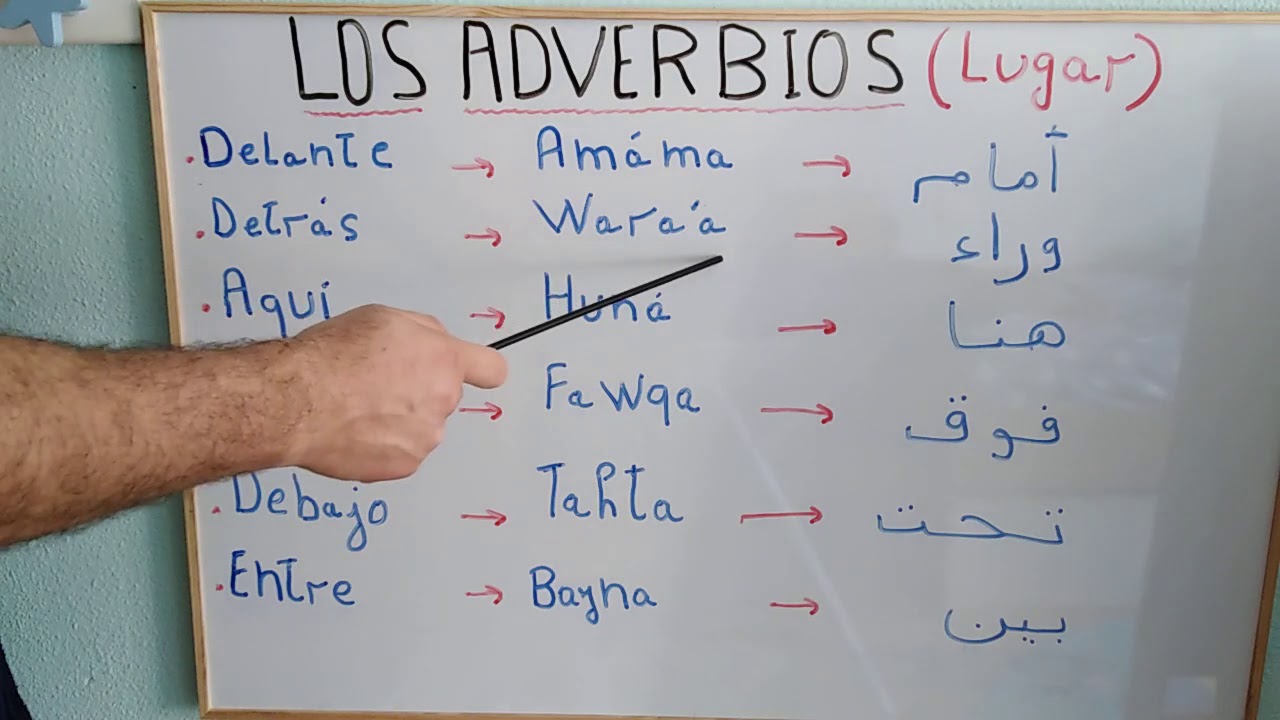 LOS ADVERBIOS (Lugar)
.Delante → Amáma → أمام
.Detrás → Wara'a → وراء
.Aquí → Huná → هنا
→ Fawqa → فوق
.Debajo → Tahta → تحت
.Entre → Bayna → بين